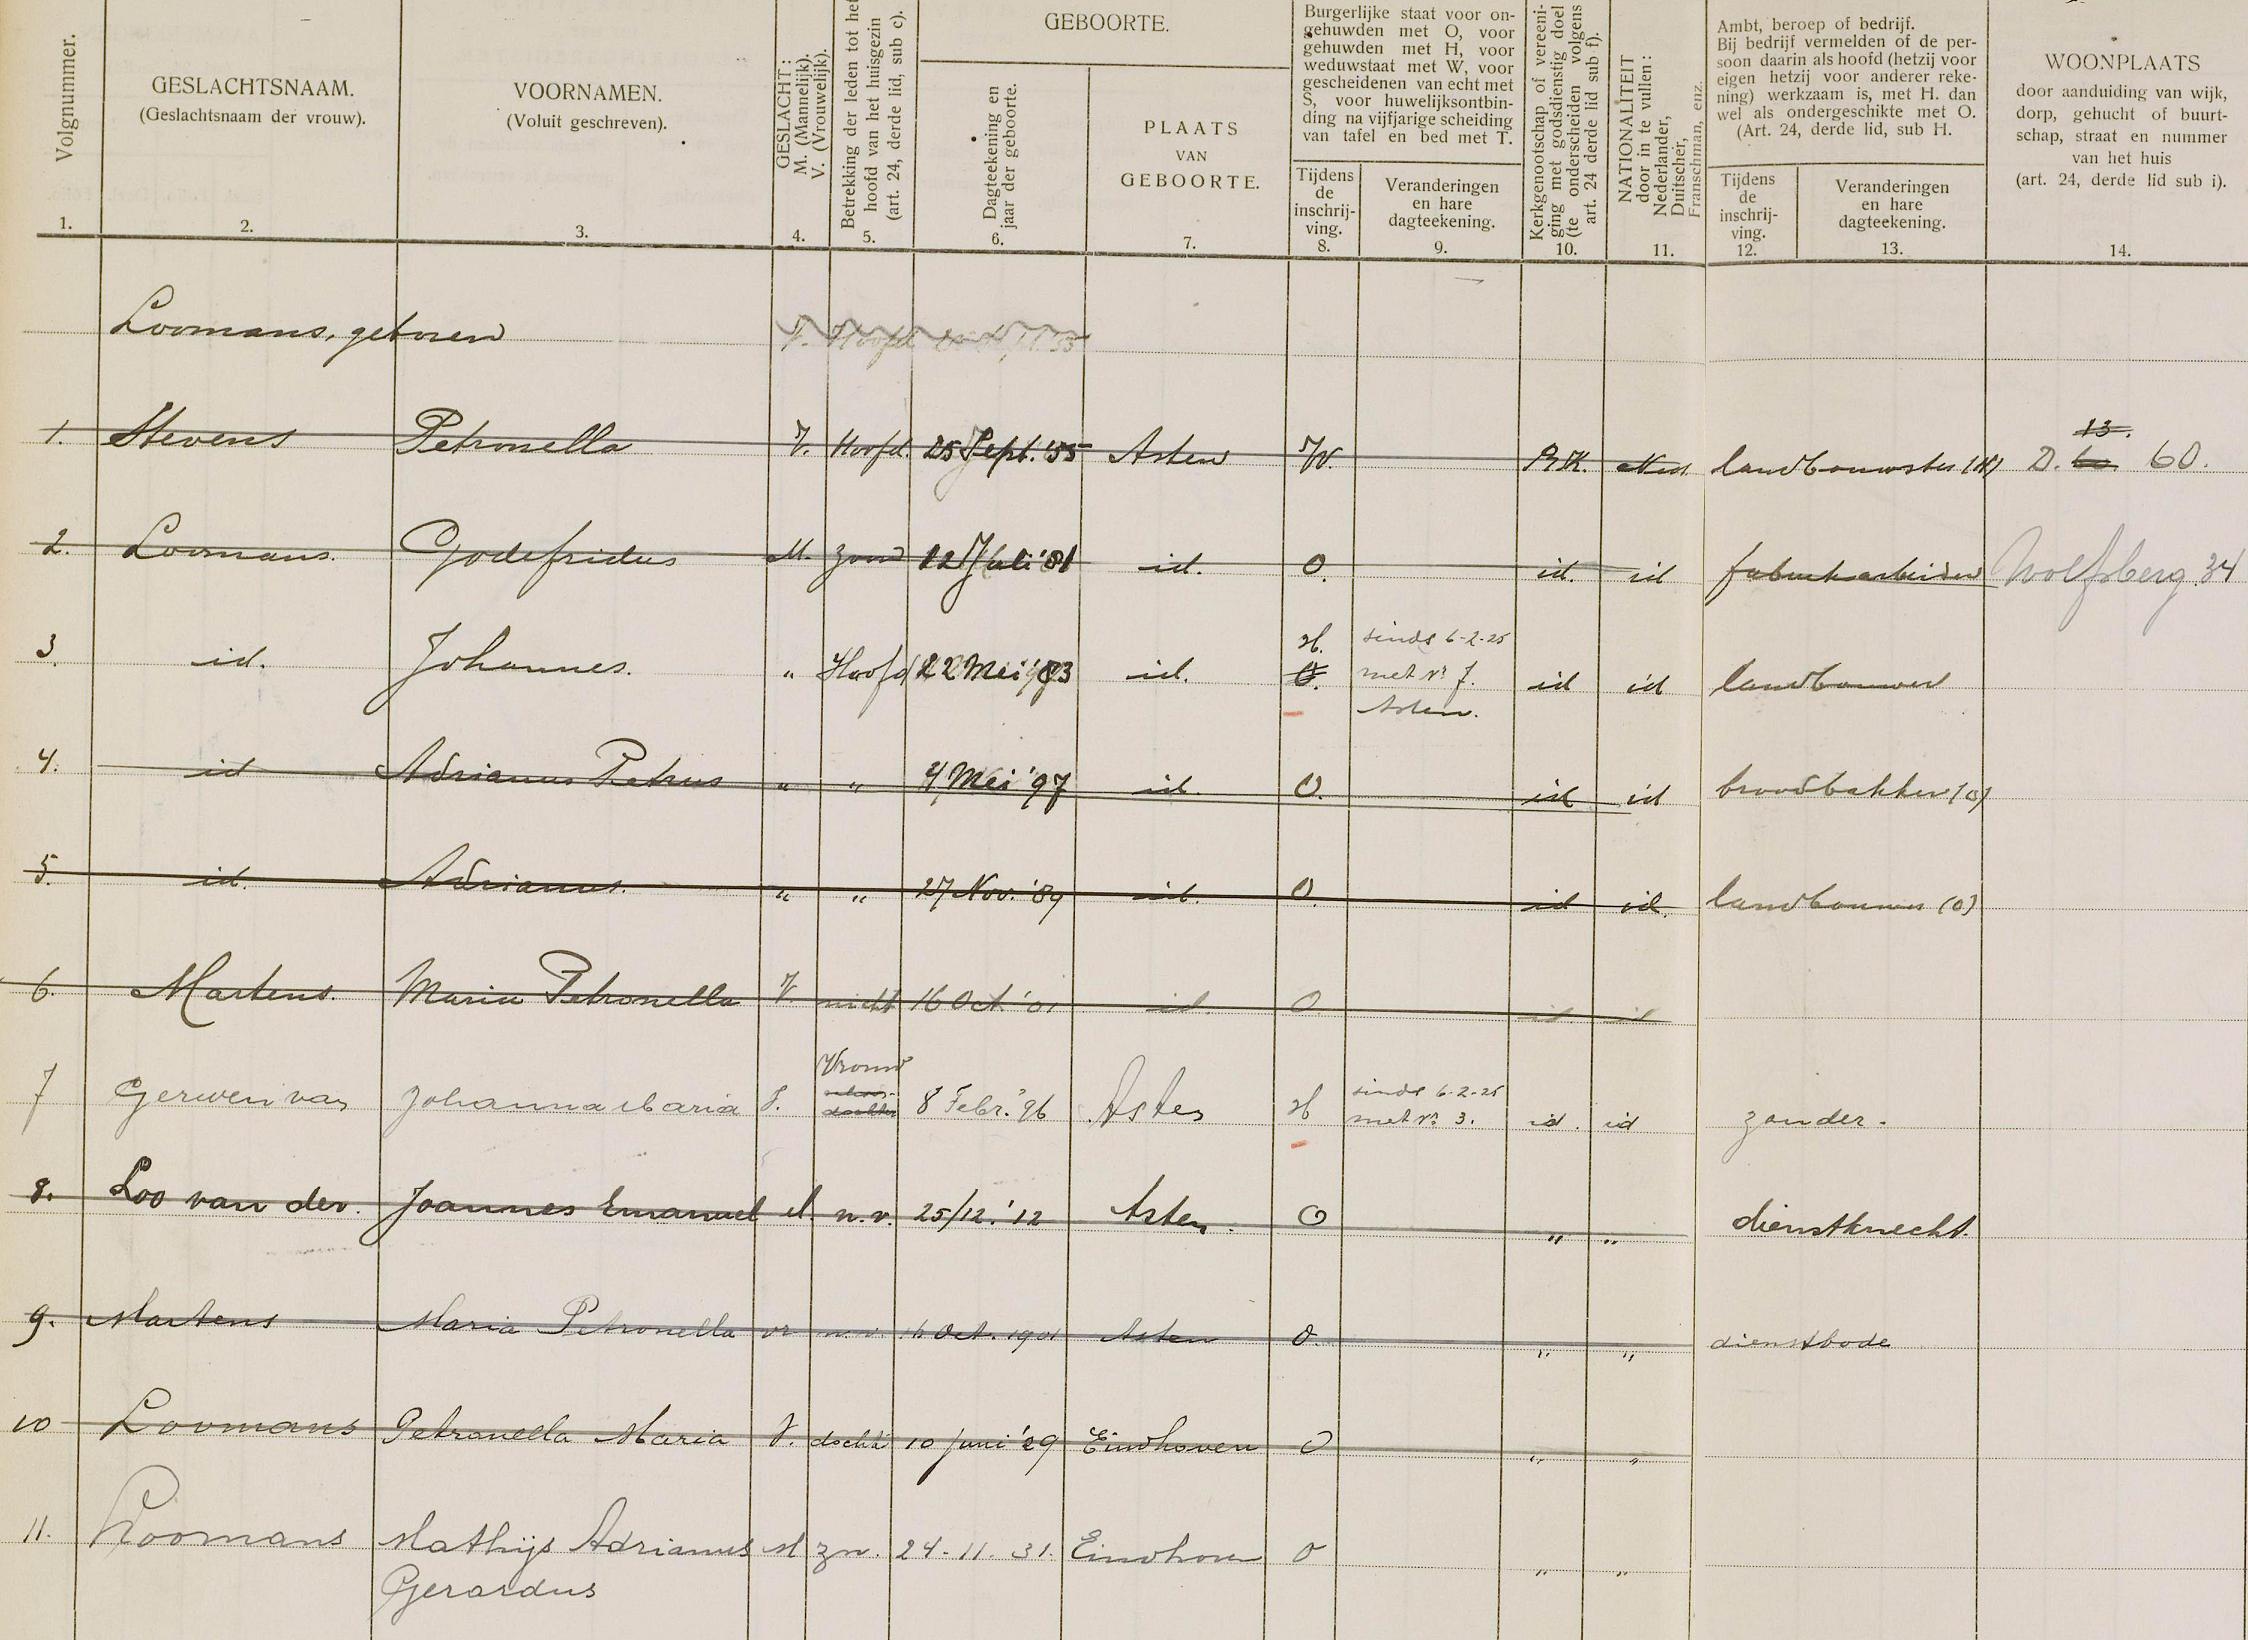 Volgnummer.
1.
GESLACHTSNAAM.
(Geslachtsnaam der vrouw).
2.
VOORNAMEN.
(Voluit geschreven).
3.
GESLACHT:
M. (Mannelijk).
V. (Vrouwelijk).
4.
Betrekking der leden tot het
hoofd van het huisgezin
(art. 24, derde lid, sub c).
5.
GEBOORTE.
Dagteekening en
jaar der geboorte.
6.
PLAATS
VAN
GEBOORTE.
7.
Burgerlijke staat voor on-
gehuwden met O, voor
gehuwden met H, voor
weduwstaat met W, voor
gescheidenen van echt met
S, voor huwelijksontbin-
ding na vijfjarige scheiding
van tafel en bed met T.
Tijdens
de
inschrij-
ving.
8.
Veranderingen
en hare
dagteekening.
9.
Kerkgenootschap of vereeni-
ging met godsdienstig doel
(te onderscheiden volgens
art. 24 derde lid sub f).
10.
NATIONALITEIT
door in te vullen:
Nederlander,
Duitscher,
Franschman, enz.
11.
Ambt, beroep of bedrijf.
Bij bedrijf vermelden of de per-
soon daarin als hoofd (hetzij voor
eigen hetzij voor anderer reke-
ning) werkzaam is, met H. dan
wel als ondergeschikte met O.
(Art. 24, derde lid, sub H.
Tijdens
de
inschrij-
ving.
12.
Veranderingen
en hare
dagteekening.
13.
WOONPLAATS
door aanduiding van wijk,
dorp, gehucht of buurt-
schap, straat en nummer
van het huis
(art. 24, derde lid sub i).
14.
Loomans, geboren V. Hoofd
13.
1. Stevens Petronella V. Hoofd. 25 Sept. '55 Asten W. R.K. Ned. landbouwster (H) D. 60.
2. Loomans. Godefridus M. zoon 12 Juli '81 id. O. id. id fabriekarbeider Wolfsberg 34
H. sinds 6-2-25
3. id. Johannes. " Hoofd 22 Mei '83 id. O. met No 7. id id landbouwer
Asten.
4. id Adrianus Petrus " " 4 Mei '97 id. O. id id broodbakker (O)
5. id. Adrianus. " " 27 Nov. '89 id. O. id id. landbouwer (O)
6. Martens. Maria Petronella V. nicht 16 Oct '01 id. O id id
Vrouw sinds 6-2-25
7 Gerwen van Johanna Maria V. dochter 8 Febr. '96 Asten H met No 3. id. id zonder.
8. Loo van der. Joannes Emanuel M. n.v. 25/12.'12 Asten. O " " dienstknecht.
9. Martens Maria Petronella vr n.v. 16 Oct. 1901 Asten O. " " dienstbode
10 Loomans Petronella Maria V. docht 10 Juni '29 Eindhoven O " "
11. Loomans Mathijs Adrianus M zn. 24-11-31. Eindhoven O " "
Gerardus